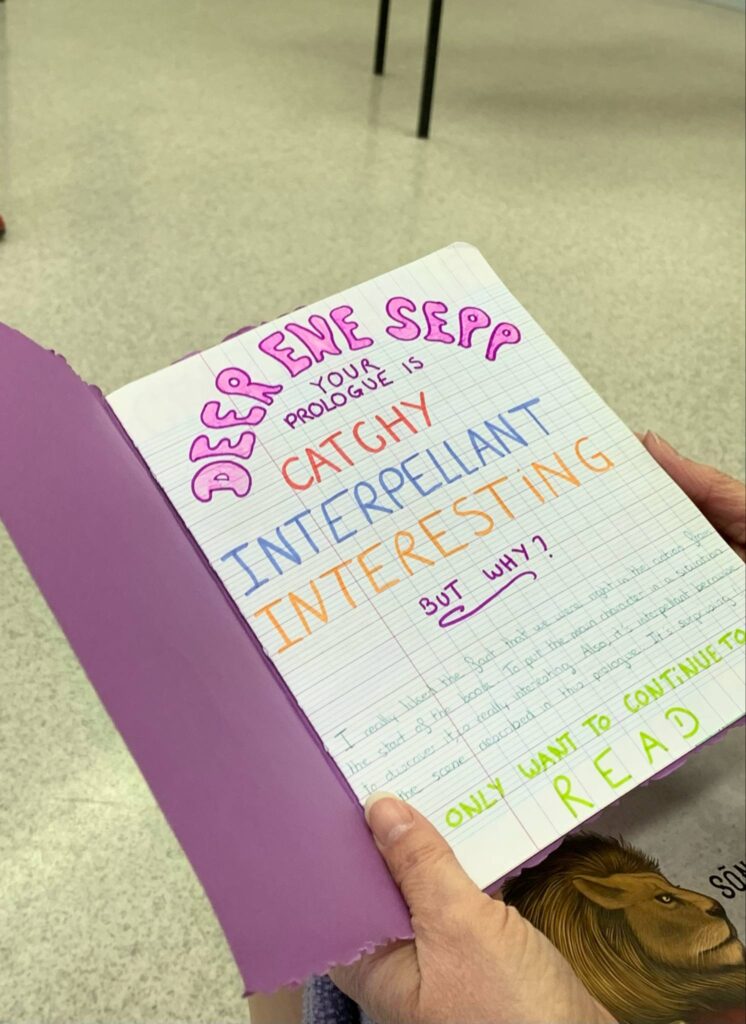 DEER ENE SEPP
YOUR
PROLOGUE IS
CATCHY
INTERPELLANT
INTERESTING
BUT WHY?
I really liked the fact that we were right in the action from
the start of the book. To put the main character in a situation
to discover it, is really interesting. Also, it's interpellant because
the scene described in this prologue. It's surprising
ONLY WANT TO CONTINUE TO
READ